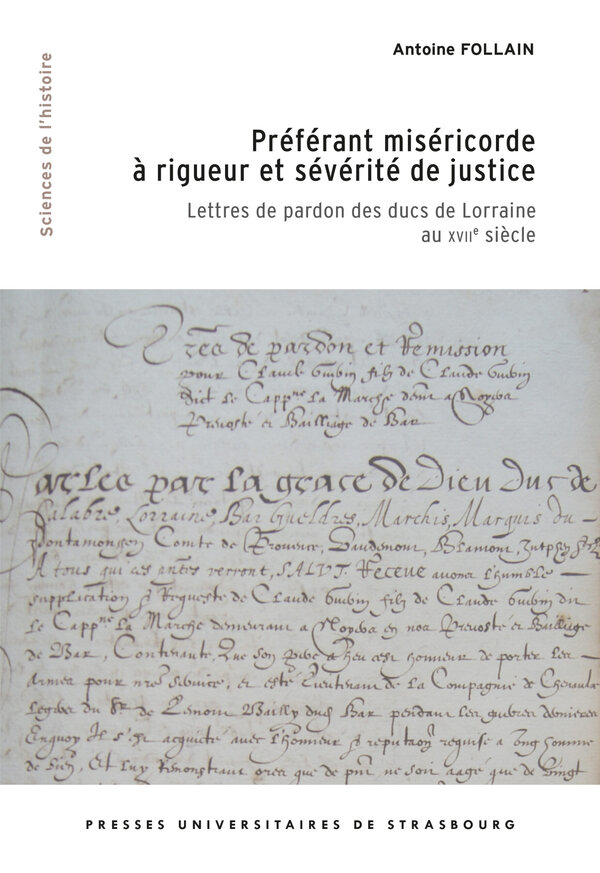 Antoine FOLLAIN
Sciences de l'histoire
Préférant miséricorde
à rigueur et sévérité de justice
Lettres de pardon des ducs de Lorraine
au XVIIe siècle
de pardon et Remission
pour Claude filz de Claude
dict le Cappne la Marche a
Prevosté et Bailliage de Bar
Carles par la grace de Dieu Duc de
Calabre, Lorraine, Bar Gueldres, Marchis, Marquis du
Pontamousson Comte de Provence, Vaudemont, Blamont, Zutphen
A tous qui ces verront, SALUT. Receue avons l'humble
supplication & Requeste de Claude filz de Claude dit
le Cappne la Marche demeurant a en noz Prevosté et Bailliage
de Bar, Contenante, Que son pere a heu cest honneur de porter les
armes pour nre service, et esté Lieutenant de la Compagnie de
du Sr de Lenoncourt Bailly dud Bar pendant les guerres dernieres
Enquoy Il s'est acquicté avec l'honneur & reputaon requise a ung homme
de bien, Et luy Remonstrant ores que de pnt ne soit aagé que de Vingt
PRESSES UNIVERSITAIRES DE STRASBOURG